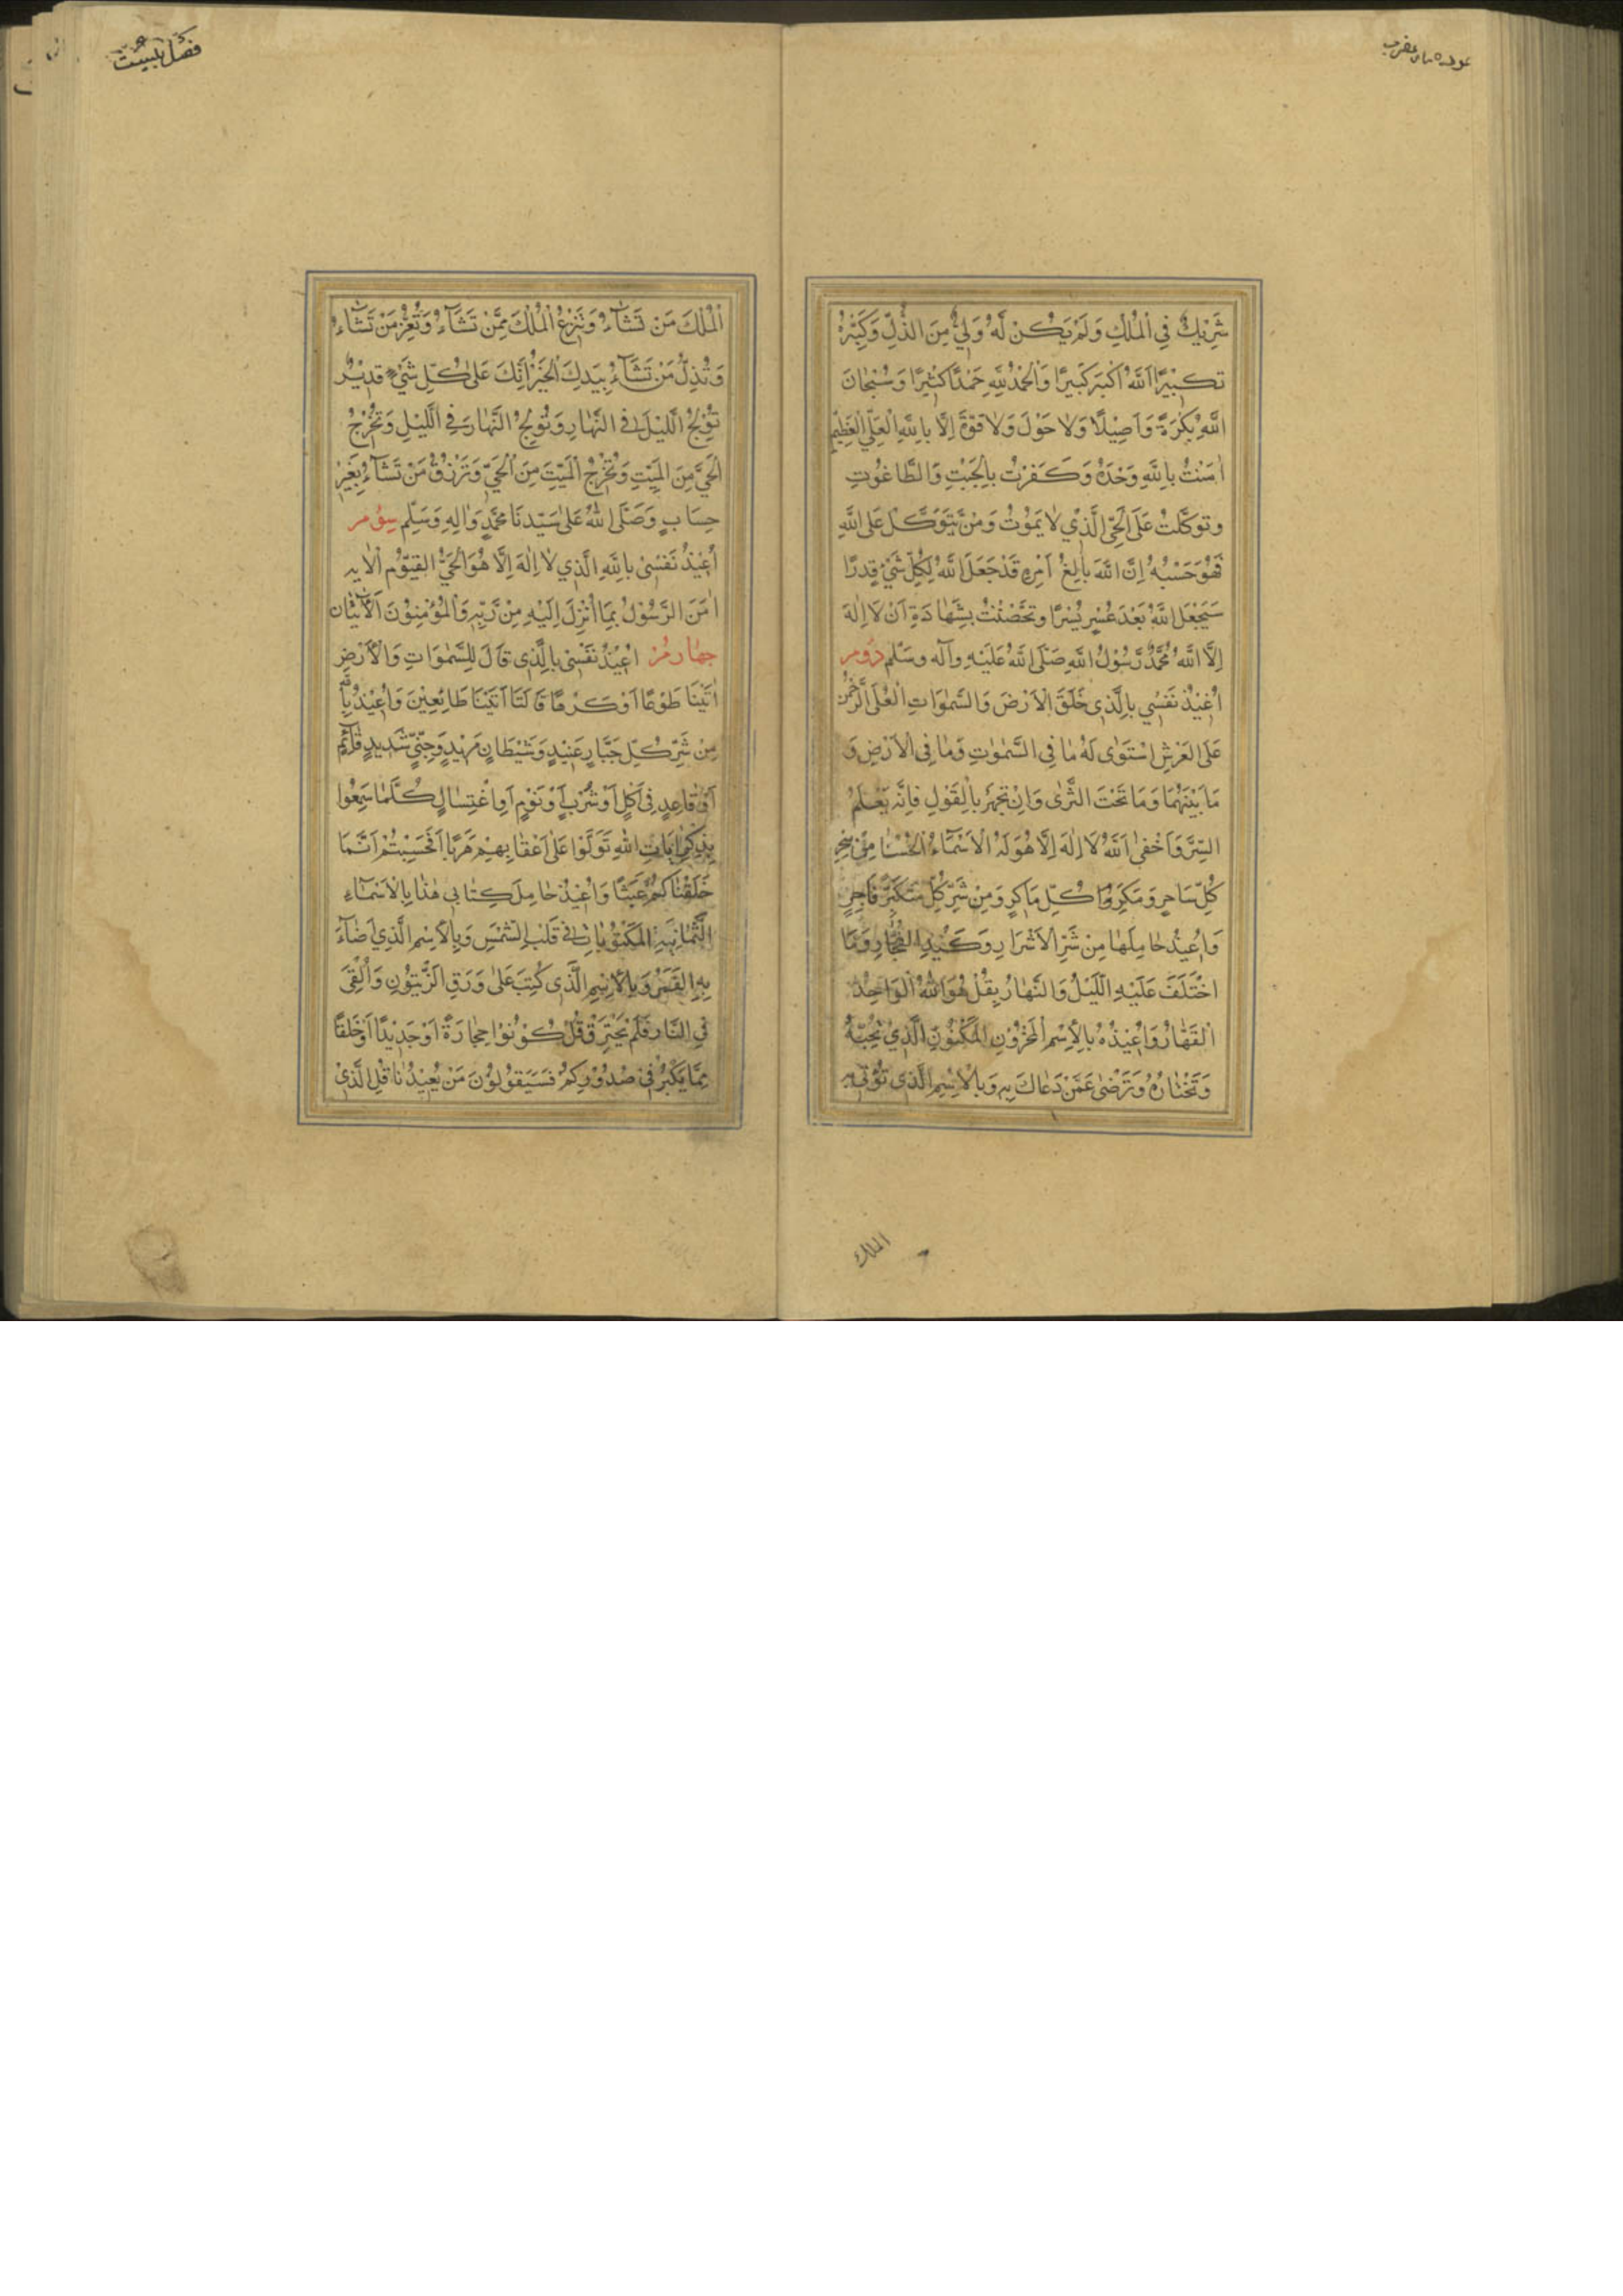 شَرِيكٌ فِي الْمُلْكِ وَلَمْ يَكُنْ لَهُ وَلِيٌّ مِنَ الذُّلِّ وَكَبِّرْهُ
تَكْبِيرًا اَللّٰهُ اَكْبَرُ كَبِيرًا وَالْحَمْدُ لِلّٰهِ حَمْدًا كَثِيرًا وَسُبْحَانَ
اللّٰهِ بُكْرَةً وَاَصِيلًا وَلَا حَوْلَ وَلَا قُوَّةَ اِلَّا بِاللّٰهِ الْعَلِيِّ الْعَظِيمِ
اٰمَنْتُ بِاللّٰهِ وَحْدَهُ وَكَفَرْتُ بِالْجِبْتِ وَالطَّاغُوتِ
وَتَوَكَّلْتُ عَلَى الْحَيِّ الَّذِي لَا يَمُوتُ وَمَنْ يَتَوَكَّلْ عَلَى اللّٰهِ
فَهُوَ حَسْبُهُ اِنَّ اللّٰهَ بَالِغُ اَمْرِهِ قَدْ جَعَلَ اللّٰهُ لِكُلِّ شَيْءٍ قَدْرًا
سَيَجْعَلُ اللّٰهُ بَعْدَ عُسْرٍ يُسْرًا وَتَحَصَّنْتُ بِشَهَادَةِ اَنْ لَا اِلٰهَ
اِلَّا اللّٰهُ مُحَمَّدٌ رَسُولُ اللّٰهِ صَلَّى اللّٰهُ عَلَيْهِ وَآلِهِ وَسَلَّمَ دُومر
اُعِيذُ نَفْسِي بِالَّذِي خَلَقَ الْاَرْضَ وَالسَّمٰوَاتِ الْعُلَى الرَّحْمٰنُ
عَلَى الْعَرْشِ اسْتَوٰى لَهُ مَا فِي السَّمٰوَاتِ وَمَا فِي الْاَرْضِ وَ
مَا بَيْنَهُمَا وَمَا تَحْتَ الثَّرٰى وَاِنْ تَجْهَرْ بِالْقَوْلِ فَاِنَّهُ يَعْلَمُ
السِّرَّ وَاَخْفٰى اَللّٰهُ لَا اِلٰهَ اِلَّا هُوَ لَهُ الْاَسْمَاءُ الْحُسْنٰا مِنْ سِحْرِ
كُلِّ سَاحِرٍ وَمَكِرُوا كُلِّ مَاكِرٍ وَمِنْ شَرِّ كُلِّ مُتَكَبِّرٍ فَاجِرٍ
وَاُعِيذُ حَامِلَهَا مِنْ شَرِّ الْاَشْرَارِ وَكَيْدِ الْفُجَّارِ وَمَا
اخْتَلَفَ عَلَيْهِ اللَّيْلُ وَالنَّهَارُ بِقُلْ هُوَ اللّٰهُ الْوَاحِدُ
الْقَهَّارُ وَاُعِيذُهُ بِالْاِسْمِ الْمَخْزُونِ الْمَكْنُونِ الَّذِي تُحِبُّهُ
وَتَخْتَارُهُ وَتَرْضٰى عَمَّنْ دَعَاكَ بِهِ وَبِالْاِسْمِ الَّذِي تُؤْتِي بِهِ
الملك
فصل بیست
الْمُلْكَ مَنْ تَشَاءُ وَتَنْزِعُ الْمُلْكَ مِمَّنْ تَشَاءُ وَتُعِزُّ مَنْ تَشَاءُ
وَتُذِلُّ مَنْ تَشَاءُ بِيَدِكَ الْخَيْرُ اِنَّكَ عَلٰى كُلِّ شَيْءٍ قَدِيرٌ
تُولِجُ اللَّيْلَ فِي النَّهَارِ وَتُولِجُ النَّهَارَ فِي اللَّيْلِ وَتُخْرِجُ
الْحَيَّ مِنَ الْمَيِّتِ وَتُخْرِجُ الْمَيِّتَ مِنَ الْحَيِّ وَتَرْزُقُ مَنْ تَشَاءُ بِغَيْرِ
حِسَابٍ وَصَلَّى اللّٰهُ عَلٰى سَيِّدِنَا مُحَمَّدٍ وَاٰلِهِ وَسَلِّمْ سِوُمر
اُعِيذُ نَفْسِي بِاللّٰهِ الَّذِي لَا اِلٰهَ اِلَّا هُوَ الْحَيُّ الْقَيُّومُ اَلْاٰيه
اٰمَنَ الرَّسُولُ بِمَا اُنْزِلَ اِلَيْهِ مِنْ رَبِّهِ وَالْمُؤْمِنُونَ اَلْاٰيتان
چهارمر اُعِيذُ نَفْسِي بِالَّذِي قَالَ لِلسَّمٰوَاتِ وَالْاَرْضِ
اٰتَيْنَا طَوْعًا اَوْ كَرْهًا قَالَتَا اَتَيْنَا طَائِعِينَ وَاُعِيذُ بِاللّٰهِ
مِنْ شَرِّ كُلِّ جَبَّارٍ عَنِيدٍ وَشَيْطَانٍ مَرِيدٍ وَجِنِّيٍّ شَدِيدٍ قَائِمٍ
اَوْ قَاعِدٍ فِي اَكْلٍ اَوْ شُرْبٍ اَوْ نَوْمٍ اَوِ اغْتِسَالٍ كُلَّمَا سَمِعُوا
بِذِكْرِ اٰيَاتِ اللّٰهِ تَوَلَّوْا عَلٰى اَعْقَابِهِمْ هَرَبًا اَفَحَسِبْتُمْ اَنَّمَا
خَلَقْنَاكُمْ عَبَثًا وَاُعِيذُ حَامِلَ كِتَابِي هٰذَا بِالْاَسْمَاءِ
الثَّمَانِيَةِ الْمَكْتُوبَاتِ فِي قَلْبِ الشَّمْسِ وَبِالْاِسْمِ الَّذِي اَضَاءَ
بِهِ الْقَمَرُ وَبِالْاِسْمِ الَّذِي كُتِبَ عَلٰى وَرَقِ الزَّيْتُونِ وَاُلْقِيَ
فِي النَّارِ فَلَمْ يَحْتَرِقْ قُلْ كُونُوا حِجَارَةً اَوْ حَدِيدًا اَوْ خَلْقًا
مِمَّا يَكْبُرُ فِي صُدُورِكُمْ فَسَيَقُولُونَ مَنْ يُعِيدُنَا قُلِ الَّذِي